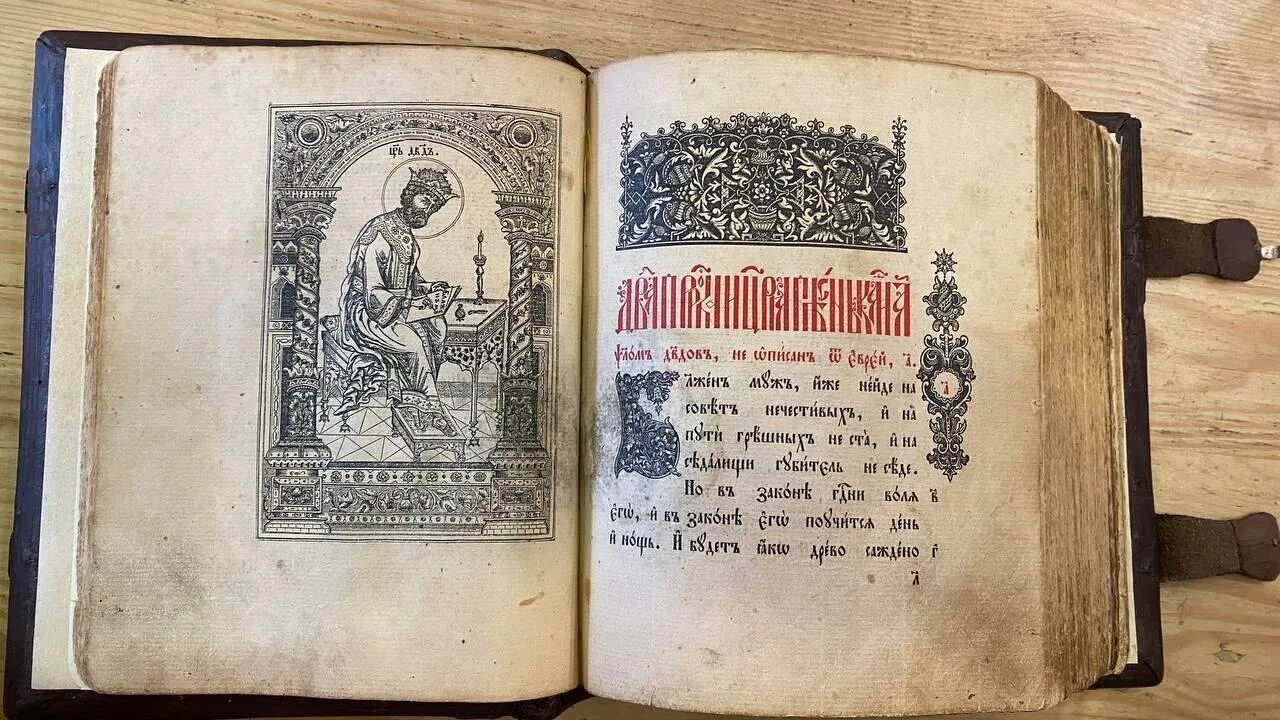 Цр҃ь дв҃дъ.
ѱл҃о́мъ дв҃довъ, не ѡ҆пи́санъ ѿ є҆вре́й, а҃.
Бл҃же́нъ мꙋ́жъ, и҆́же не и́де на
совѣ́тъ нечести́выхъ, и҆ на
пꙋтѝ грѣ́шныхъ не ста̀, и҆ на
сѣда́лищи гꙋби́тель не сѣ́де.
а҃
Но въ зако́нѣ гдⷭ҇ни во́лѧ в҃
є҆гѡ̀, и҆ въ зако́нѣ є҆гѡ̀ поꙋчи́тсѧ де́нь
и҆ но́щь. И҆ бꙋ́детъ ꙗ҆́кѡ дре́во саждено̀ г҃
а҃